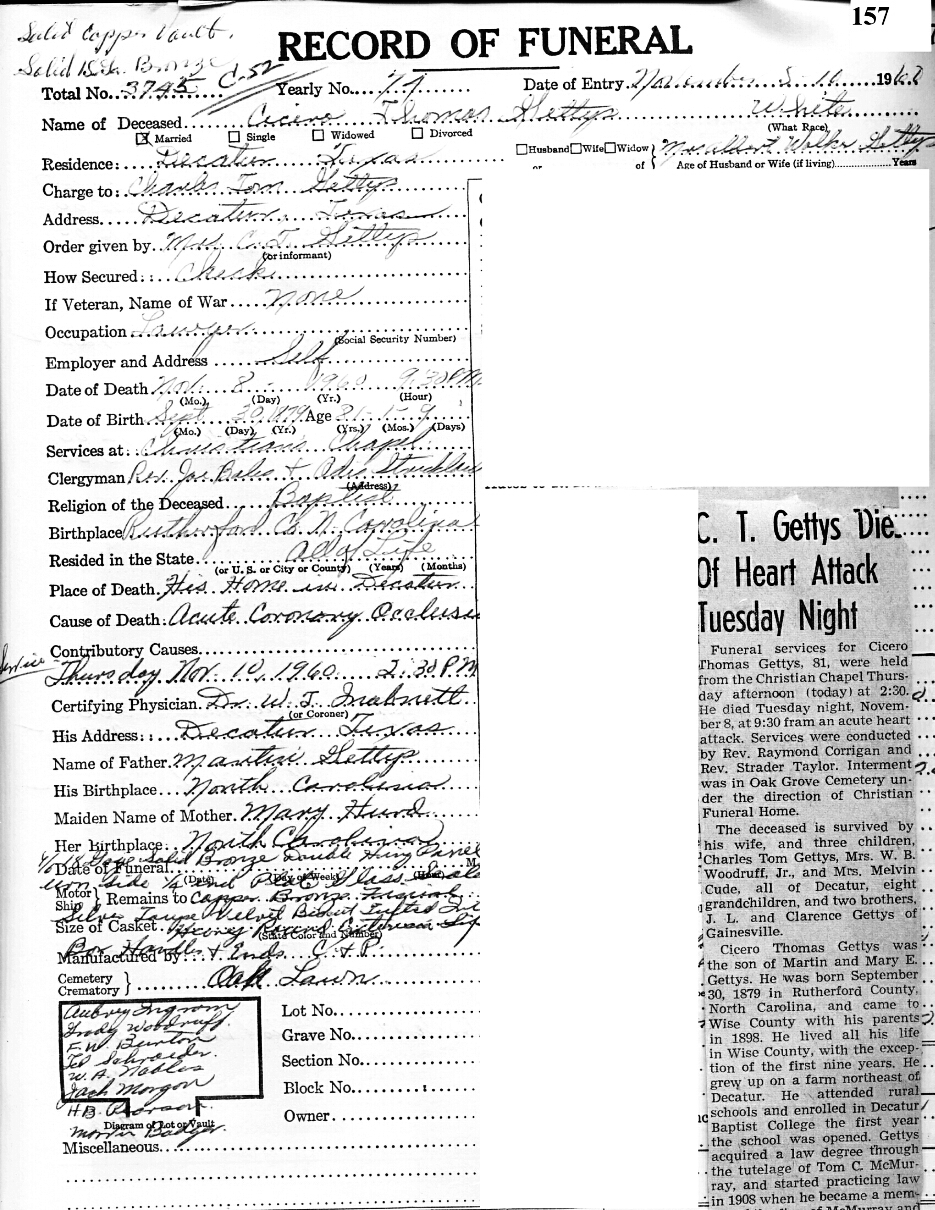 157
Solid Copper Vault.
Solid Bronze
RECORD OF FUNERAL
Total No. 3745 C.52 Yearly No. 79 Date of Entry November 8-10 196
Name of Deceased Cicero Thomas Gettys White
(What Race)
Married Single Widowed Divorced
Residence: Decatur Texas
Husband Wife Widow Walker Gettys
or of Age of Husband or Wife (if living) Years
Charge to: Charles Tom Gettys
Address Decatur Texas
Order given by Mrs. C. T. Gettys
(or informant)
How Secured: Check
If Veteran, Name of War none
Occupation Lawyer
(Social Security Number)
Employer and Address Self
Date of Death Nov. 8 - 1960 9:30 P.M.
(Mo.) (Day) (Yr.) (Hour)
Date of Birth Sept 30 1879 Age 81-1-9
(Mo.) (Day) (Yr.) (Yrs.) (Mos.) (Days)
Services at: Christian's Chapel
Clergyman Rev. Joe Bales +
(Address)
Religion of the Deceased Baptist
Birthplace Rutherford Co. N. Carolina
Resided in the State All of Life
(or U. S. or City or County) (Years) (Months)
Place of Death His Home in Decatur
Cause of Death: Acute Coronary Occlusi
Contributory Causes
Service
Thursday Nov. 10, 1960 2:30 P.M
Certifying Physician Dr. W. J. Inabnett
(or Coroner)
His Address: Decatur Texas
Name of Father Martin Gettys
His Birthplace North Carolina
Maiden Name of Mother Mary Hurd
Her Birthplace North Carolina
Solid Bronze Double
Date of Funeral M.
(Date) (Day of Week) (Hour)
Motor
Ship
Remains to Copper Bronze
Silver Taupe Velvet Tufted
Size of Casket Heavy Round
(State Color and Number)
Box Handles + Ends C + P
Manufactured by
Cemetery
Crematory
Oak Lawn
Aubrey Ingram
Andy Woodruff
F. W. Burton
Ed Schroeder
W. A. Nobles
Jack Morgan
H B. Pearson
Diagram of Lot or Vault
Lot No.
Grave No.
Section No.
Block No.
Owner
Miscellaneous
C. T. Gettys Die
Of Heart Attack
Tuesday Night
Funeral services for Cicero
Thomas Gettys, 81, were held
from the Christian Chapel Thurs-
day afternoon (today) at 2:30.
He died Tuesday night, Novem-
ber 8, at 9:30 fram an acute heart
attack. Services were conducted
by Rev. Raymond Corrigan and
Rev. Strader Taylor. Interment
was in Oak Grove Cemetery un-
der the direction of Christian
Funeral Home.
The deceased is survived by
his wife, and three children,
Charles Tom Gettys, Mrs. W. B.
Woodruff, Jr., and Mrs. Melvin
Cude, all of Decatur, eight
grandchildren, and two brothers,
J. L. and Clarence Gettys of
Gainesville.
Cicero Thomas Gettys was
the son of Martin and Mary E.
Gettys. He was born September
30, 1879 in Rutherford County,
North Carolina, and came to
Wise County with his parents
in 1898. He lived all his life
in Wise County, with the excep-
tion of the first nine years. He
grew up on a farm northeast of
Decatur. He attended rural
schools and enrolled in Decatur
Baptist College the first year
the school was opened. Gettys
acquired a law degree through
the tutelage of Tom C. McMur-
ray, and started practicing law
in 1908 when he became a mem-